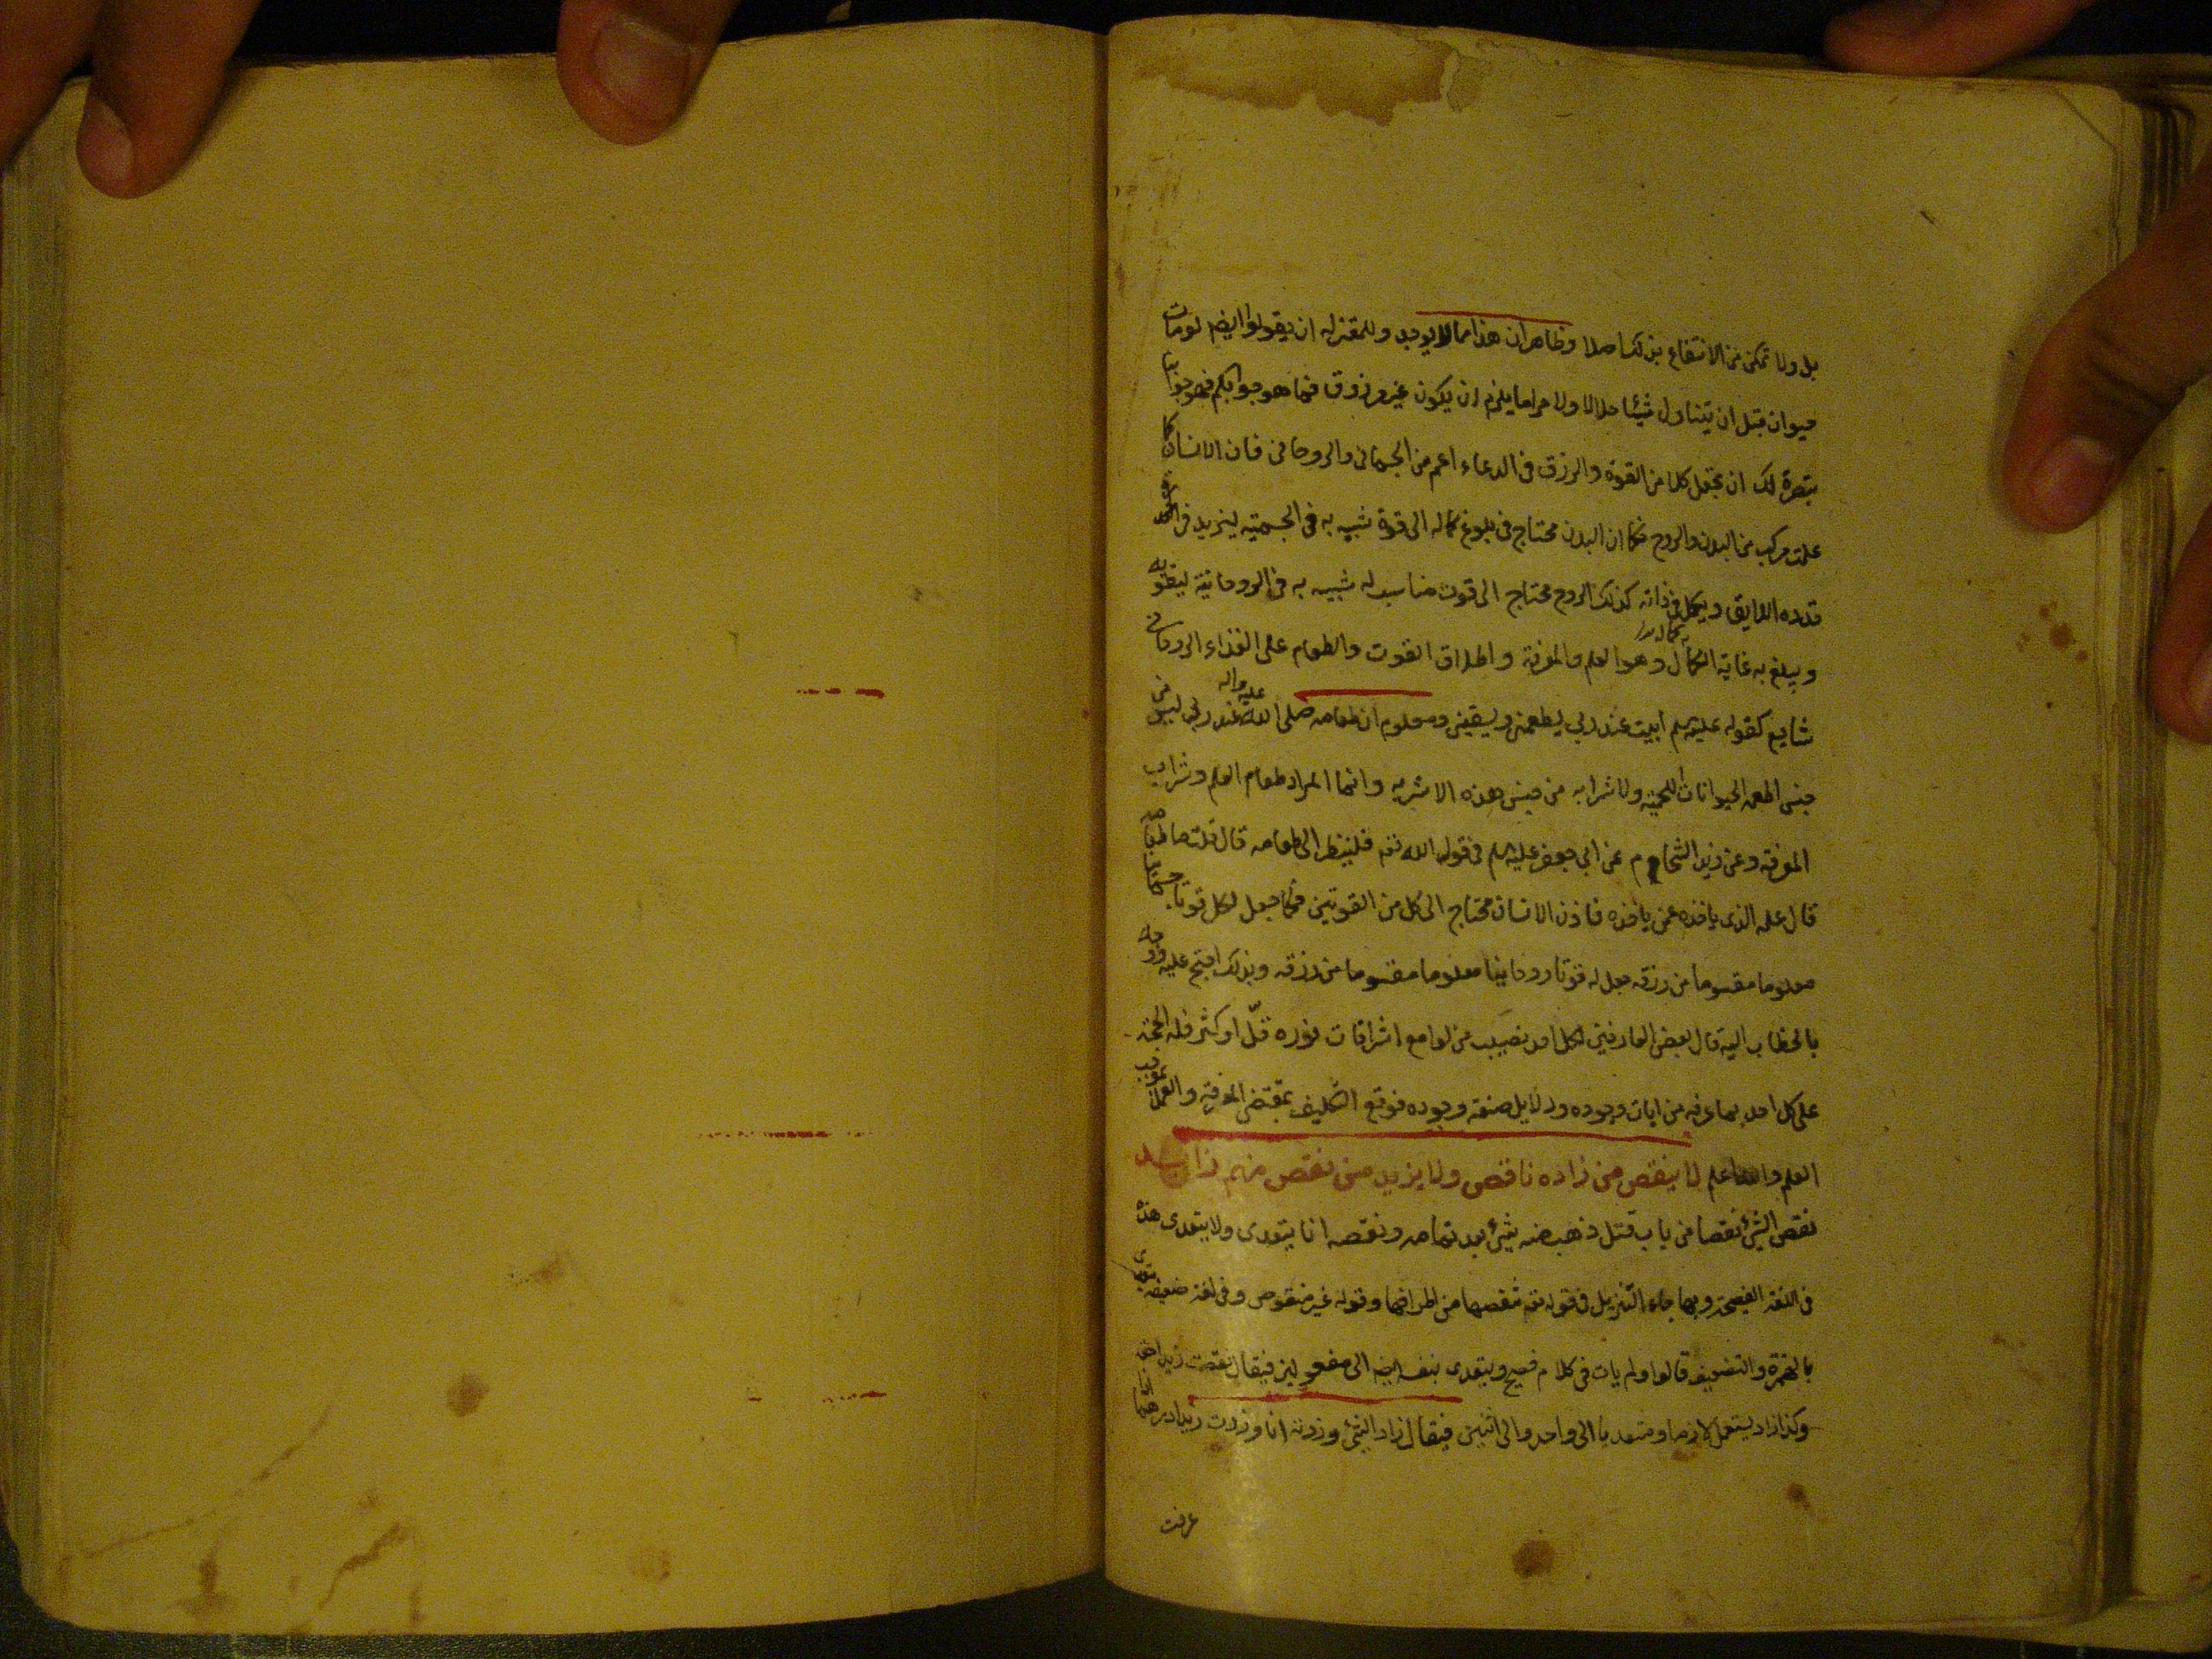 بل ولا تمكن من الانتفاع بذلك اصلا وظاهر ان هذا مما لا يوجد وللمعتزله ان يقولوا ايضم لومات
حيوان قبل ان يتناول شيئا حلالا ولا حراما يلزم ان يكون غير مرزوق فما هو جوابكم فهو جوابنا
تبصرة لك ان تجعل كلا من القوة والرزق فى الدعاء اعم من الجسمانى والروحانى فان الانسان كما
علمت مركب من البدن والروح فكما ان البدن محتاج فى بلوغ كماله الى قوة شبيه به فى الجسمية ليزيد فى
قدره اللايق ويكمل فى ذاته كذلك الروح محتاج الى قوت مناسب له شبيه به فى الروحانية ليقويه
ويبلغ به غاية الكمال وهو العلم والمعرفة واطلاق القوت والطعام على الغذاء الروحانى
شايع كقوله عليه السلم ابيت عند ربى يطعمنى ويسقينى ومعلوم ان طعامه صلى الله عليه واله عند ربى ليس من
جنس اطعمه الحيوانات اللحمية ولا شرابه من جنس هذه الاشربه وانما المراد طعام العلم وشراب
المعرفة وعن زيد الشحام عن ابى جعفر عليه السلم فى قوله الله تعه فلينظر الى طعامه قال قلت ما طعامه
قال علمه الذى ياخذه عمن ياخذه فاذن الانسان محتاج الى كل من القوتين فكما جعل لكل قوتا جسمانيا
معلوما مقسوما من رزقه جعل له قوتا روحانيا معلوما مقسوما من رزقه وبذلك احتج عليه ووجه
بالخطاب اليه قال بعض العارفين لكل احد نصيب من لوامع اشراقات نوره قلّ او كثر فله الحجة
على كل احد بما عرفه من ايات وجوده ودلايل صنعه وجوده فوقع التكليف بمقتضى المعرفة والعمل بموجب
العلم والله اعلم لا ينقص من زاده ناقص ولا يزيد من نقص منهم زائد
نقص الشئ نقصا من باب قتل ذهب منه شئ بعد تمامه ونقصه انا يتعدى ولا يتعدى هذه
فى اللغة الفصيحة وبها جاء التنزيل فى قوله تعه ننقصها من اطرافها وقوله غير منقوص وفى لغة ضعيفه يتعدى
بالهمزة والتضعيف قالوا ولم يات فى كلام فصيح ويتعدى بنفسه ايضه الى مفعولين فيقال نقصت زيدا حقه
وكذا زاد يستعمل لازما ومتعديا الى واحد والى اثنين فيقال زاد الشئ وزدته انا وزدت زيدا درهما
عرفت